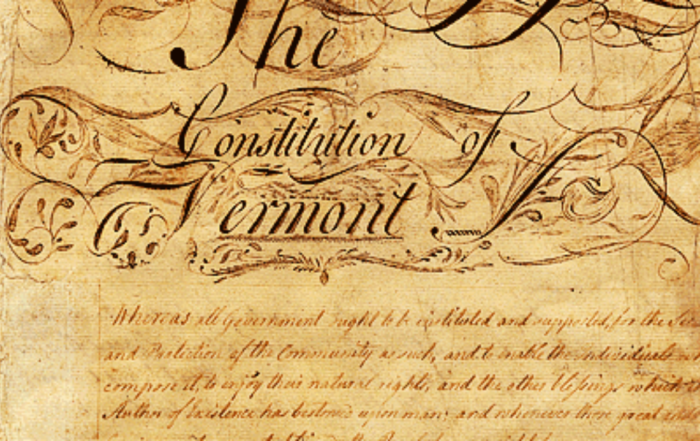 The
Constitution of
Vermont
Whereas all Government ought to be instituted and supported, for the
and Protection of the Community as such, and to enable the individuals
compose it to enjoy their natural rights, and the other blessings which
Author of Existence has bestowed upon man; and whenever those great